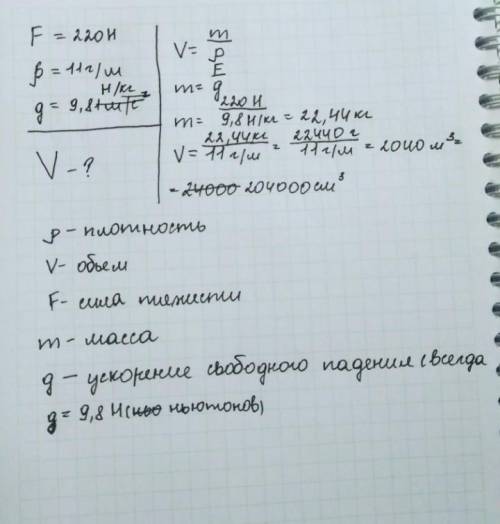 F = 220Н
ρ = 11 г/м
Н/кг
g = 9,8
V - ?
V = m/ρ
m = F/g
m = 220 Н / 9,8 Н/кг = 22,44 кг
V = 22,44 кг / 11 г/м = 22440 г / 11 г/м = 2040 м³ =
= 24000 204000 см³
ρ - плотность
V - обьем
F - сила тяжести
m - масса
g - ускорение свободного падения (всегда
g = 9,8 Н (нью ньютонов)